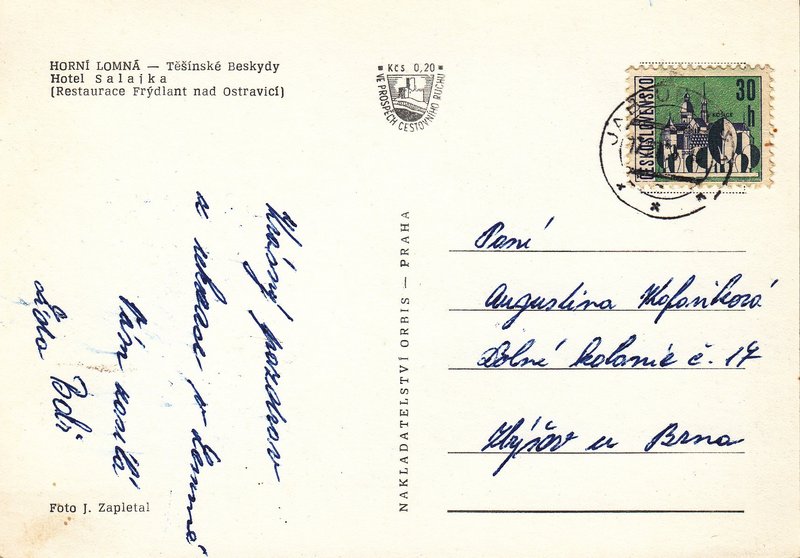 HORNÍ LOMNÁ — Těšínské Beskydy
Hotel Salajka
(Restaurace Frýdlant nad Ostravicí)
Kčs 0,20
VE PROSPĚCH CESTOVNÍHO RUCHU
30 h
ČESKOSLOVENSKO
JAB
Krásný pozdrav
z rekreace v Lomné
Vám zasílá
Lída
NAKLADATELSTVÍ ORBIS — PRAHA
Paní
Augustina
Dolní kolonie č. 17
Zbýšov u Brna
Foto J. Zapletal